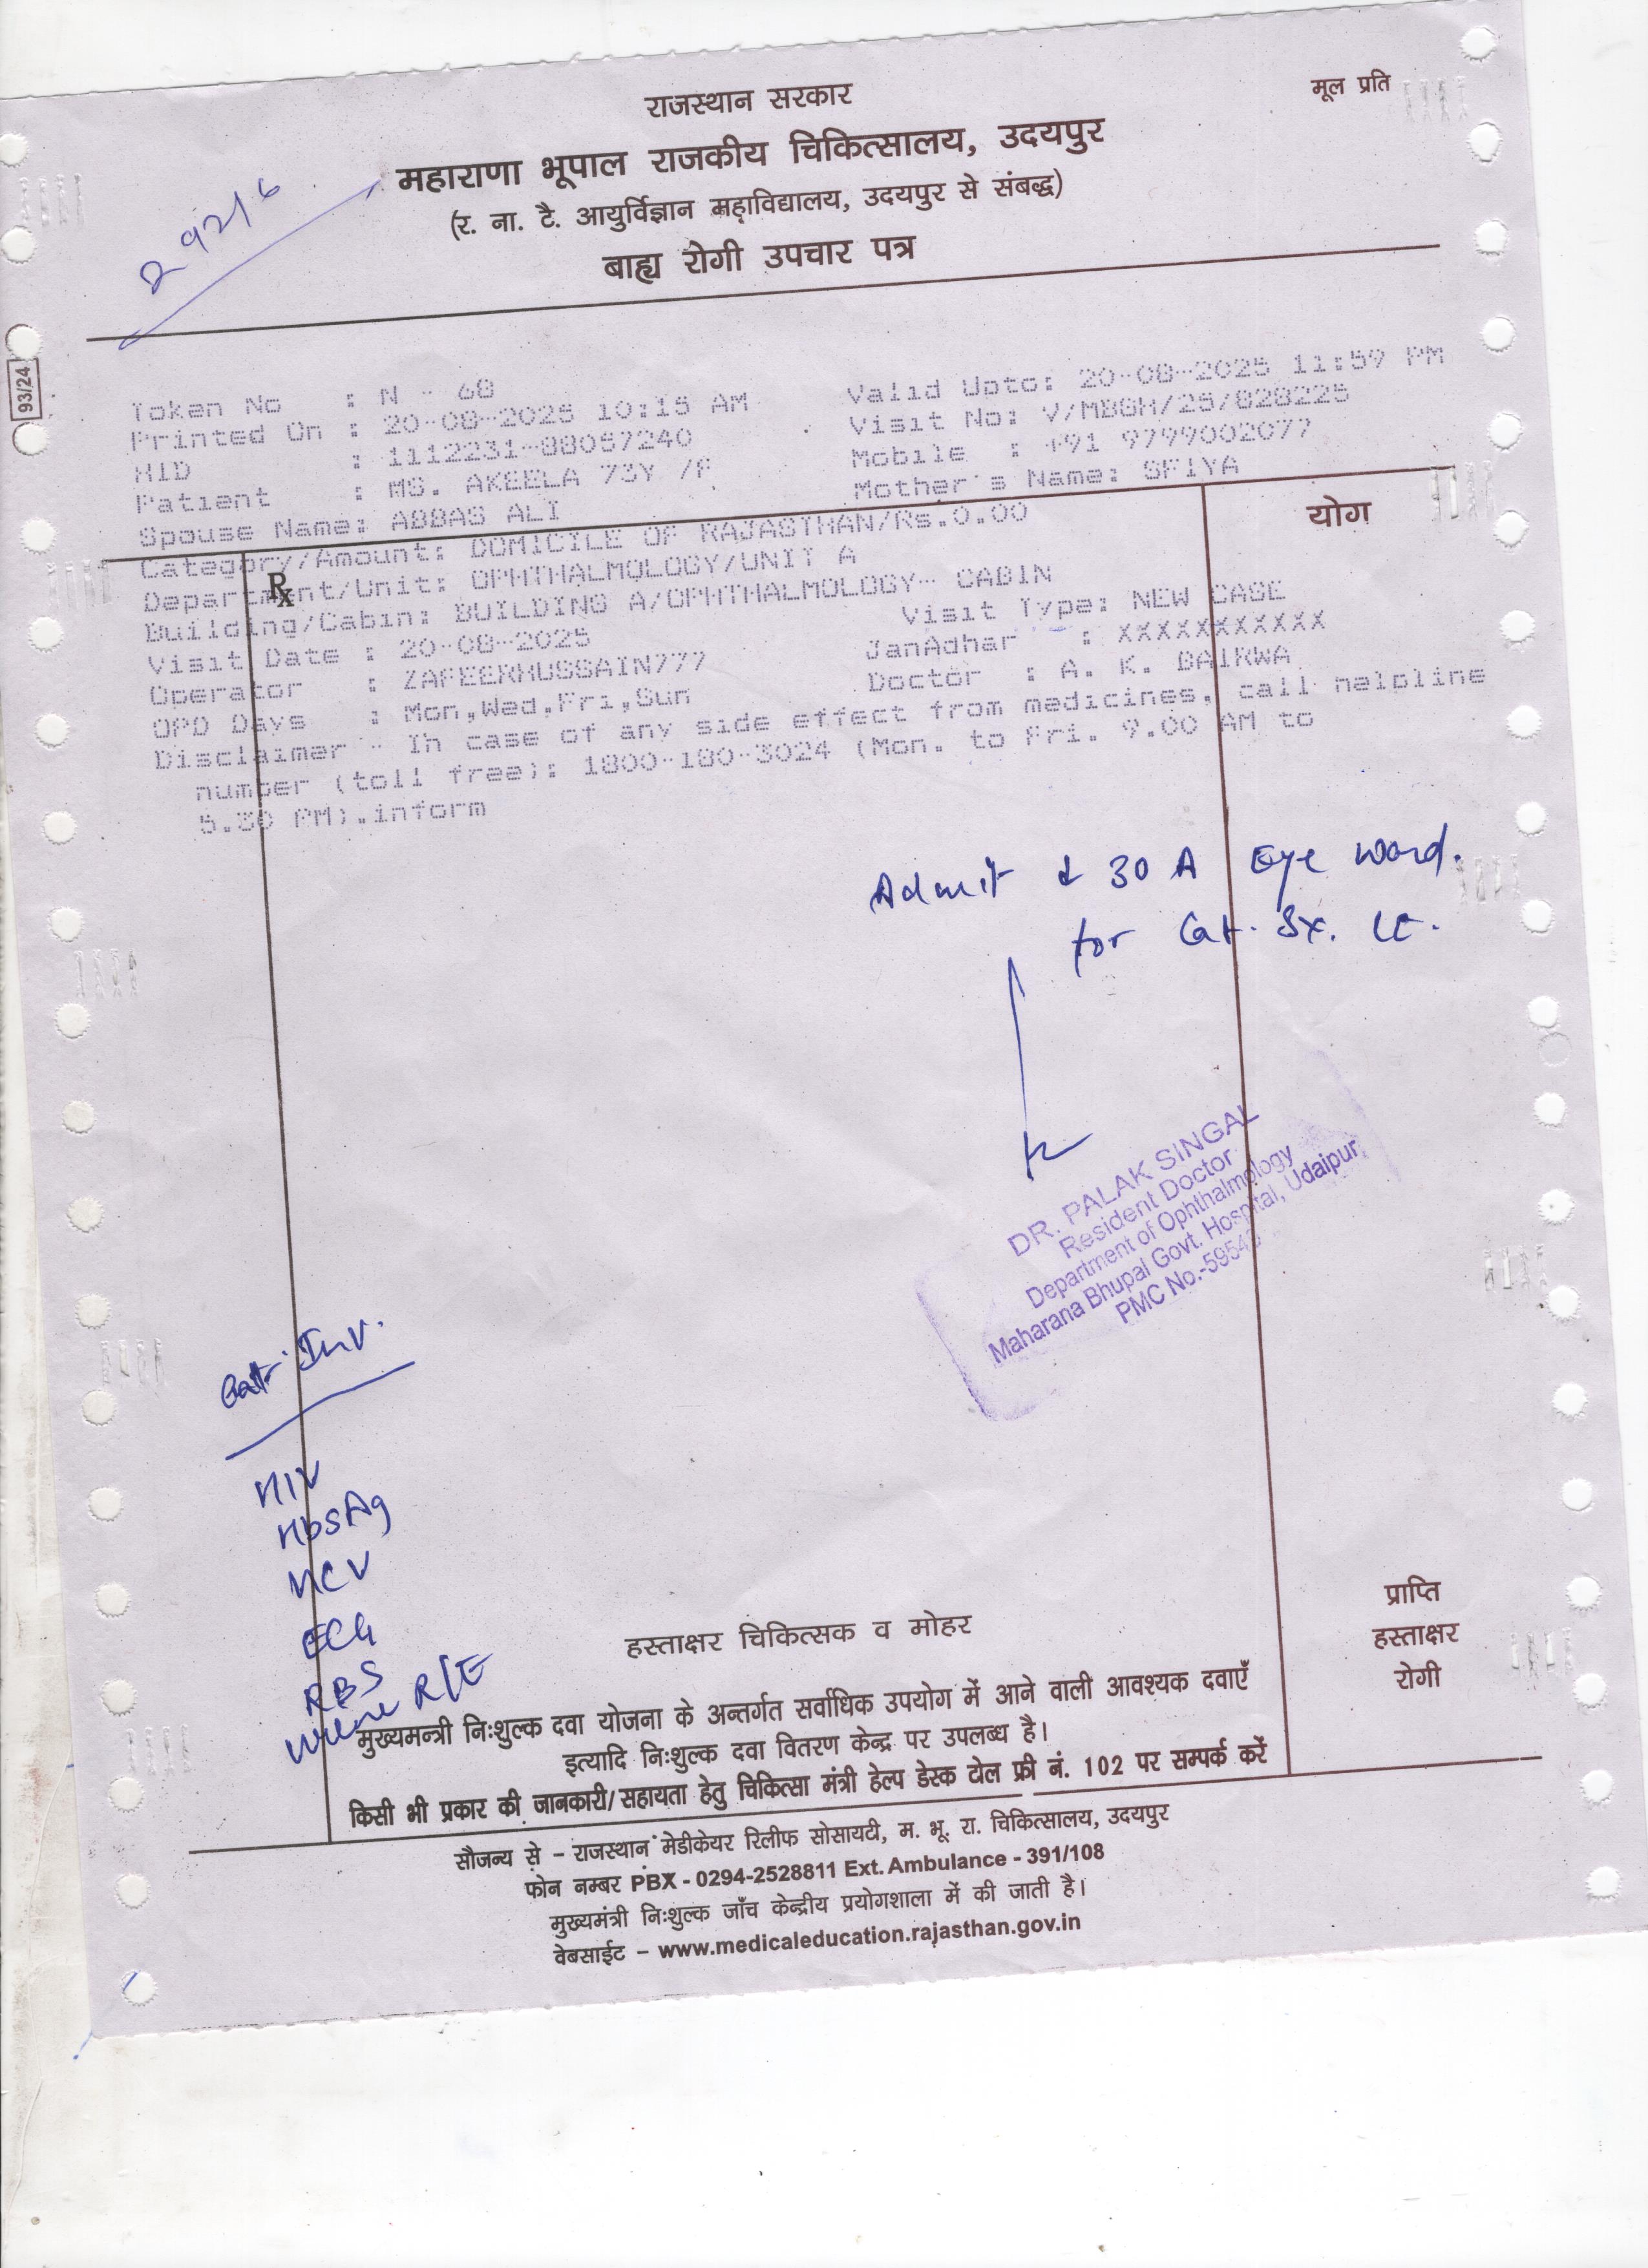 मूल प्रति
राजस्थान सरकार
महाराणा भूपाल राजकीय चिकित्सालय, उदयपुर
(र. ना. टै. आयुर्विज्ञान महाविद्यालय, उदयपुर से संबद्ध)
बाह्य रोगी उपचार पत्र
29216
93/24
Token No : N - 68
Valid Upto: 20-08-2025 11:59 PM
Printed On : 20-08-2025 10:15 AM
Visit No: V/MBGH/25/828225
HID : 1112231-88057240
Mobile : +91 9799002077
Patient : MS. AKEELA 73Y /F
Mother's Name: SFIYA
Spouse Name: ABBAS ALI
योग
Category/Amount: DOMICILE OF RAJASTHAN/Rs.0.00
Rx
Department/Unit: OPHTHALMOLOGY/UNIT A
Building/Cabin: BUILDING A/OPHTHALMOLOGY- CABIN
Visit Date : 20-08-2025
Visit Type: NEW CASE
Operator : ZAFEERHUSSAIN777
JanAdhar : XXXXXXXXXXX
OPD Days : Mon,Wed,Fri,Sun
Doctor : A. K. BAIRWA
Disclaimer - In case of any side effect from medicines, call helpline
number (toll free): 1800-180-3024 (Mon. to Fri. 9.00 AM to
5.30 PM).inform
Admit 30 A Eye ward.
for Cat. Sx. LE.
DR. PALAK SINGAL
Resident Doctor
Department of Ophthalmology
Maharana Bhupal Govt. Hospital, Udaipur
PMC No.-5954
Inv.
HIV
HbsAg
HCV
ECG
RBS
Urine R/E
हस्ताक्षर चिकित्सक व मोहर
प्राप्ति
हस्ताक्षर
रोगी
मुख्यमन्त्री निःशुल्क दवा योजना के अन्तर्गत सर्वाधिक उपयोग में आने वाली आवश्यक दवाएँ
इत्यादि निःशुल्क दवा वितरण केन्द्र पर उपलब्ध है।
किसी भी प्रकार की जानकारी/सहायता हेतु चिकित्सा मंत्री हेल्प डेस्क टोल फ्री नं. 102 पर सम्पर्क करें
सौजन्य से – राजस्थान मेडीकेयर रिलीफ सोसायटी, म. भू. रा. चिकित्सालय, उदयपुर
फोन नम्बर PBX - 0294-2528811 Ext. Ambulance - 391/108
मुख्यमंत्री निःशुल्क जाँच केन्द्रीय प्रयोगशाला में की जाती है।
वेबसाईट – www.medicaleducation.rajasthan.gov.in